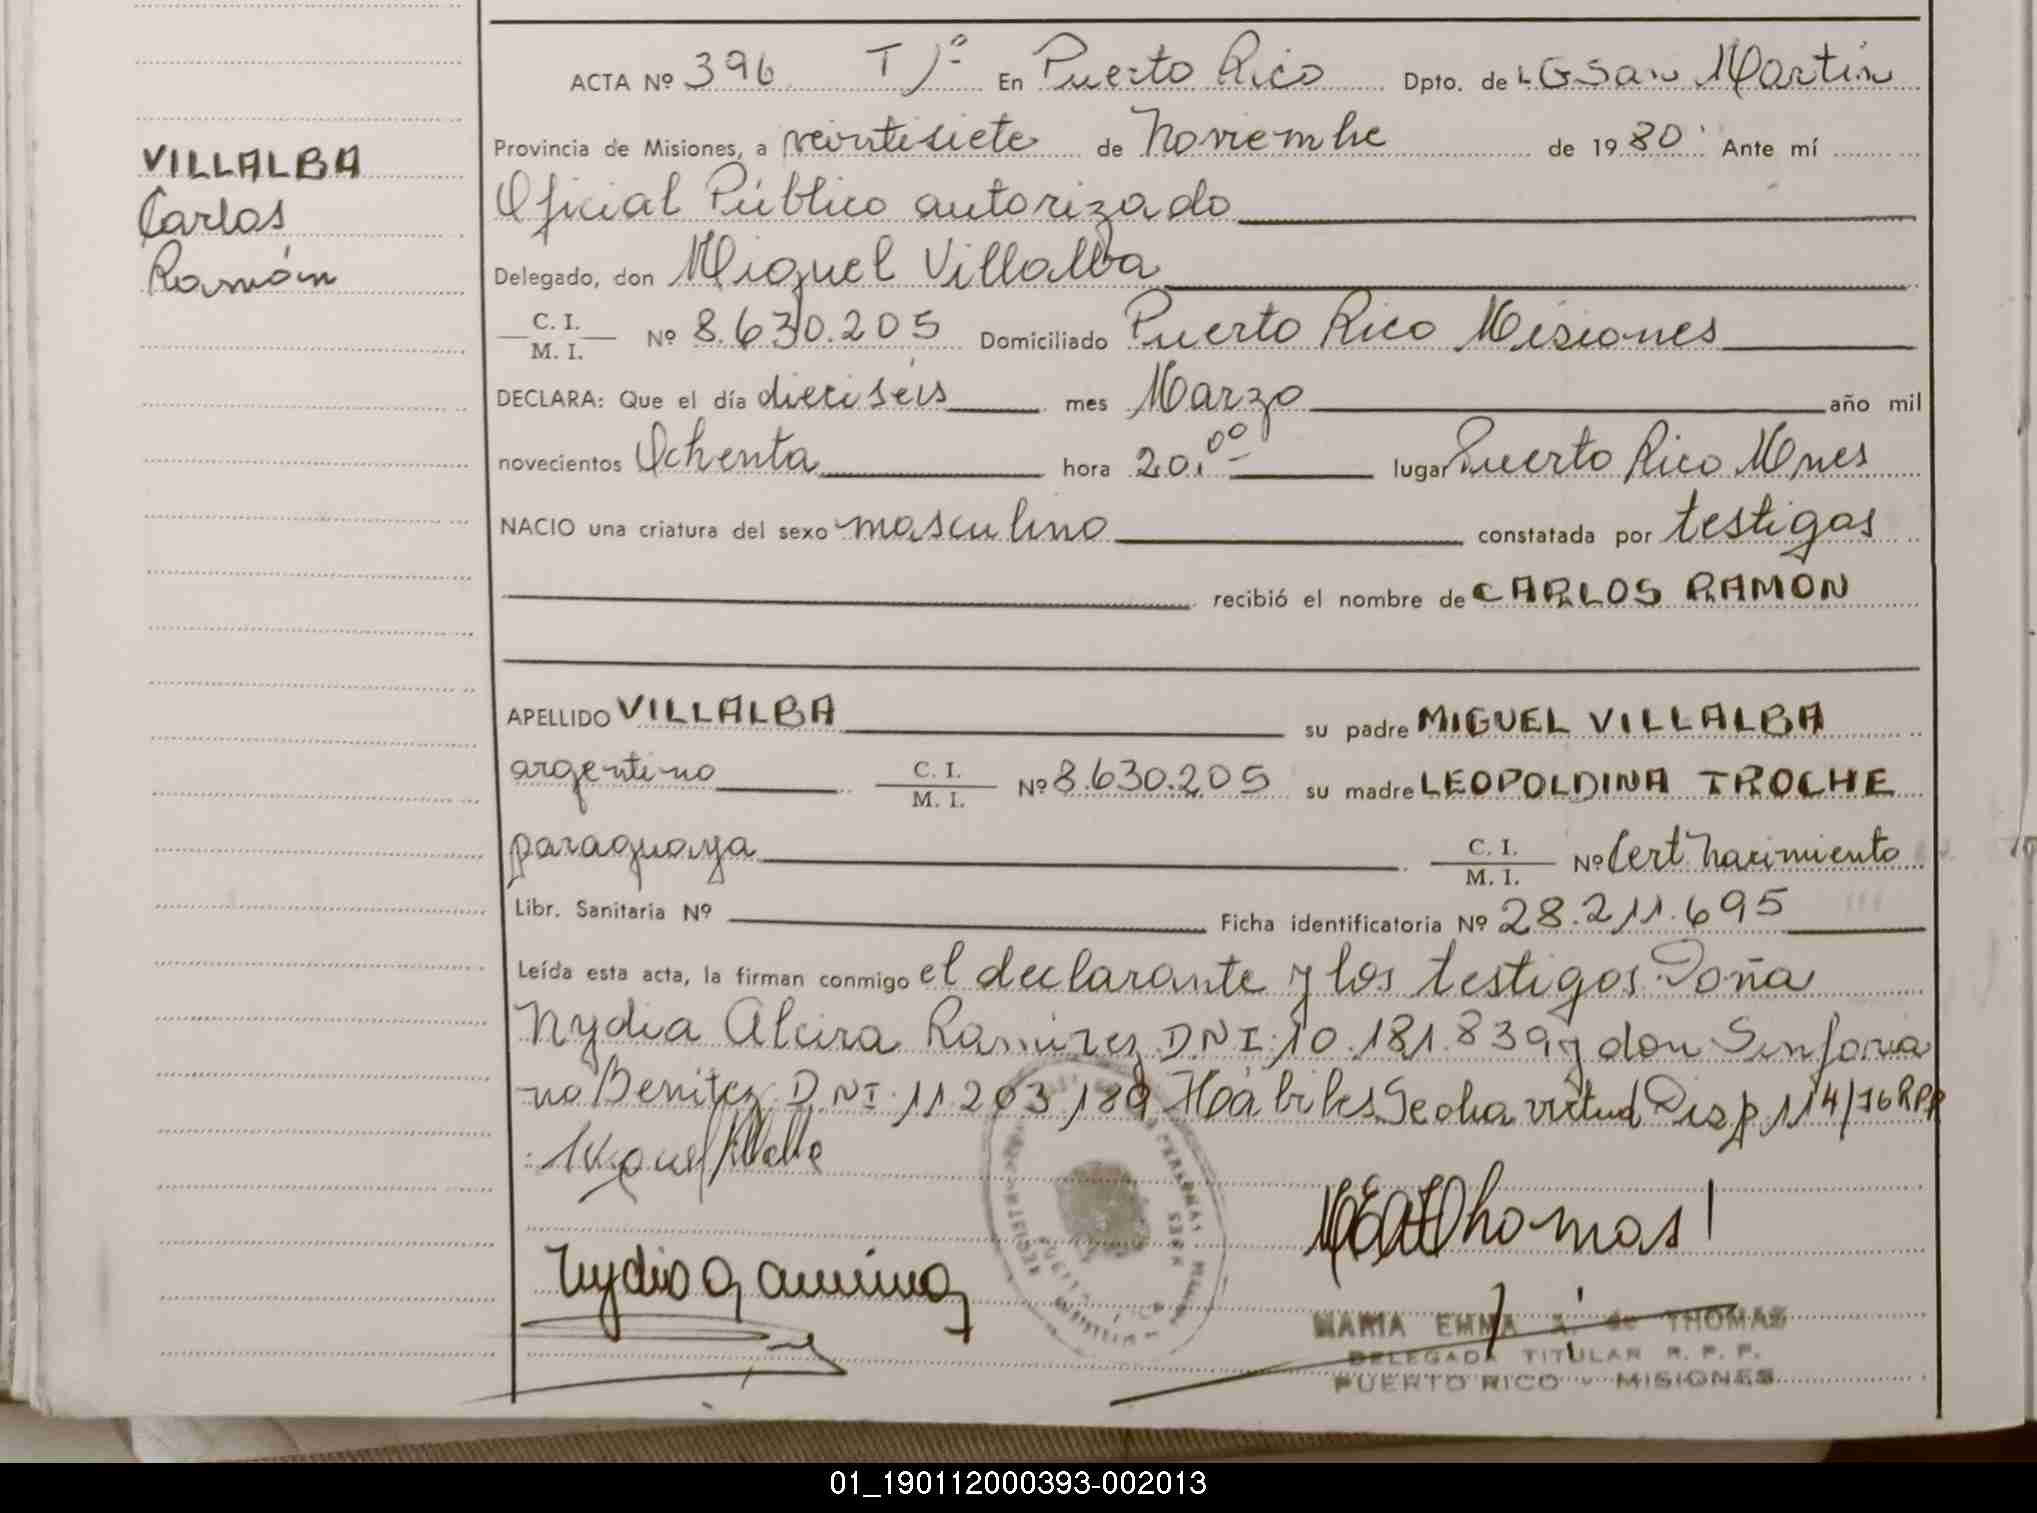 ACTA Nº 396 Tº 1º En Puerto Rico Dpto. de LG San Martín
Provincia de Misiones, a veintisiete de Noviembre de 1980. Ante mí
Oficial Público autorizado
Delegado, don Miguel Villalba
C. I.
M. I. Nº 8.630.205 Domiciliado Puerto Rico Misiones
DECLARA: Que el día dieciseis mes Marzo año mil
novecientos Ochenta hora 20,00 lugar Puerto Rico Mnes
NACIO una criatura del sexo masculino constatada por testigos
recibió el nombre de CARLOS RAMON
APELLIDO VILLALBA su padre MIGUEL VILLALBA
argentino C. I.
M. I. Nº 8.630.205 su madre LEOPOLDINA TROCHE
paraguaya C. I.
M. I. Nº Cert Nacimiento
Libr. Sanitaria Nº Ficha identificatoria Nº 28.211.695
Leída esta acta, la firman conmigo el declarante y los testigos Doña
Nydia Alcira Ramirez D.N.I. 10.181.839 y don Sinforia
no Benitez D.N.I. 11.203.189 Hábiles Se otra virtud Disp 114/76 RPP
Miguel Villalba
MARIA EMMA de THOMAS
DELEGADA TITULAR R. P. P.
PUERTO RICO - MISIONES
VILLALBA
Carlos
Ramón
01_190112000393-002013